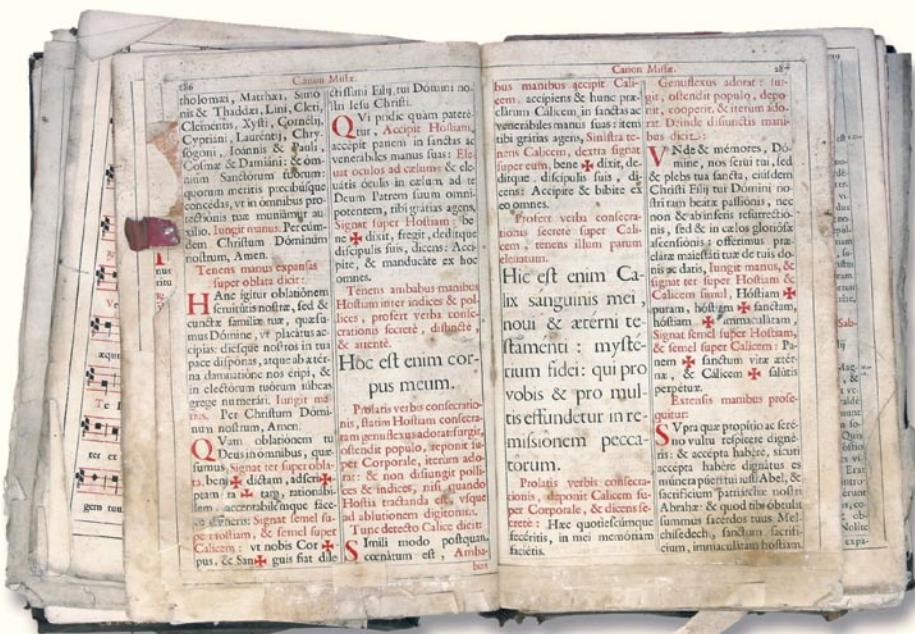 186
Canon Missæ.
tholomæi, Matthæi, Simó
nis & Thaddæi, Lini, Cleti,
Cleméntis, Xysti, Cornélij,
Cypriani, Lauréntij, Chry-
sógoni, Ioánnis & Pauli,
Cosmæ & Damiáni: & óm-
nium Sanctorum tuórum:
quorum meritis precibúsque
concédas, vt in ómnibus pro-
tectiónis tuæ muniámur au-
xílio. Iungit manus. Per eúm-
dem Christum Dóminum
nostrum, Amen.
Tenens manus expansas
super oblata dicit:
HAnc igitur oblatiónem
seruitútis nostræ, sed &
cunctæ famíliæ tuæ, quæsu-
mus Dómine, vt placátus ac-
cípias: diésque nostros in tua
pace dispónas, atque ab ætér-
na damnatióne nos éripi, &
in electórum tuórum iúbeas
grege numerári. Iungit ma-
nus. Per Christum Dómi-
num nostrum, Amen.
QVam oblatiónem tu
Deus in ómnibus, quæ-
sumus, Signat ter super obla-
ta, bene ✠ dictam, adscri ✠
ptam ra ✠ tam, rationábi-
lem, acceptabilémque fáce-
re dignéris: Signat semel su-
per Hostiam, & semel super
Calicem: vt nobis Cor ✠
pus, & San ✠ guis fiat dile
ctíssimi Filij, tui Dómini no-
stri Iesu Christi.
QVi prídie quàm paterê-
tur, Accipit Hostiam,
accépit panem in sanctas ac
venerábiles manus suas: Ele-
uat oculos ad cælum: & ele-
uátis óculis in cælum, ad te
Deum Patrem suum omni-
poténtem, tibi grátias agens,
Signat super Hostiam: be
ne ✠ dixit, fregit, dedítque
discípulis suis, dicens: Accí-
pite, & manducáte ex hoc
omnes.
Tenens ambabus manibus
Hostiam inter indices & pol-
lices, profert verba conse-
crationis secretè, distinctè,
& attentè.
Hoc est enim cor-
pus meum.
Prolatis verbis consecratio-
nis, statim Hostiam consecra-
tam genuflexus adorat: surgit,
ostendit populo, reponit su-
per Corporale, iterum ado-
rat: & non disiungit polli-
ces & indices, nisi quando
Hostia tractanda est, vsque
ad ablutionem digitorum.
Tunc detecto Calice dicit:
SImili modo postquam
cœnátum est, Amba-
bus
Canon Missæ.
287
bus manibus accipit Cali-
cem, accipiens & hunc præ-
clárum Cálicem, in sanctas ac
venerábiles manus suas: item
tibi grátias agens, Sinistra te-
nens Calicem, dextra signat
super eum, bene ✠ dixit, de-
dítque discípulis suis, di-
cens: Accípite & bíbite ex
eo omnes.
Profert verba consecra-
tionis secretè super Cali-
cem, tenens illum parum
eleuatum.
Hic est enim Ca-
lix sánguinis mei,
noui & ætérni te-
staménti: myste-
rium fidei: qui pro
vobis & pro mul-
tis effundetur in re-
missiónem pecca-
tórum.
Prolatis verbis consecra-
tionis, deponit Calicem su-
per Corporale, & dicens se-
cretè: Hæc quotiescúmque
fecéritis, in mei memóriam
faciétis.
Genuflexus adorat: sur-
git, ostendit populo, depo-
nit, cooperit, & iterum ado-
rat. Deinde disiunctis mani-
bus dicit:
VNde & mémores, Dó-
mine, nos serui tui, sed
& plebs tua sancta, eiúsdem
Christi Filij tui Dómini no-
stri tam beátæ passiónis, nec
non & ab ínferis resurrectió-
nis, sed & in cælos gloriósæ
ascensiónis: offérimus præ-
cláræ maiestáti tuæ de tuis do-
nis ac datis, Iungit manus, &
signat ter super Hostiam &
Calicem simul, Hóstiam ✠
puram, hóstiam ✠ sanctam,
hóstiam ✠ immaculátam,
Signat semel super Hostiam,
& semel super Calicem: Pa-
nem ✠ sanctum vitæ ætér-
næ, & Cálicem ✠ salútis
perpétuæ.
Extensis manibus prose-
quitur:
SVpra quæ propítio ac seré-
no vultu respícere digné-
ris: & accépta habére, sícuti
accépta habére dignátus es
múnera púeri tui iusti Abel, &
sacrifícium patriárchæ nostri
Abrahæ: & quod tibi óbtulit
summus sacérdos tuus Mel-
chísedech, sanctum sacrifí-
cium, immaculátam hóstiam.